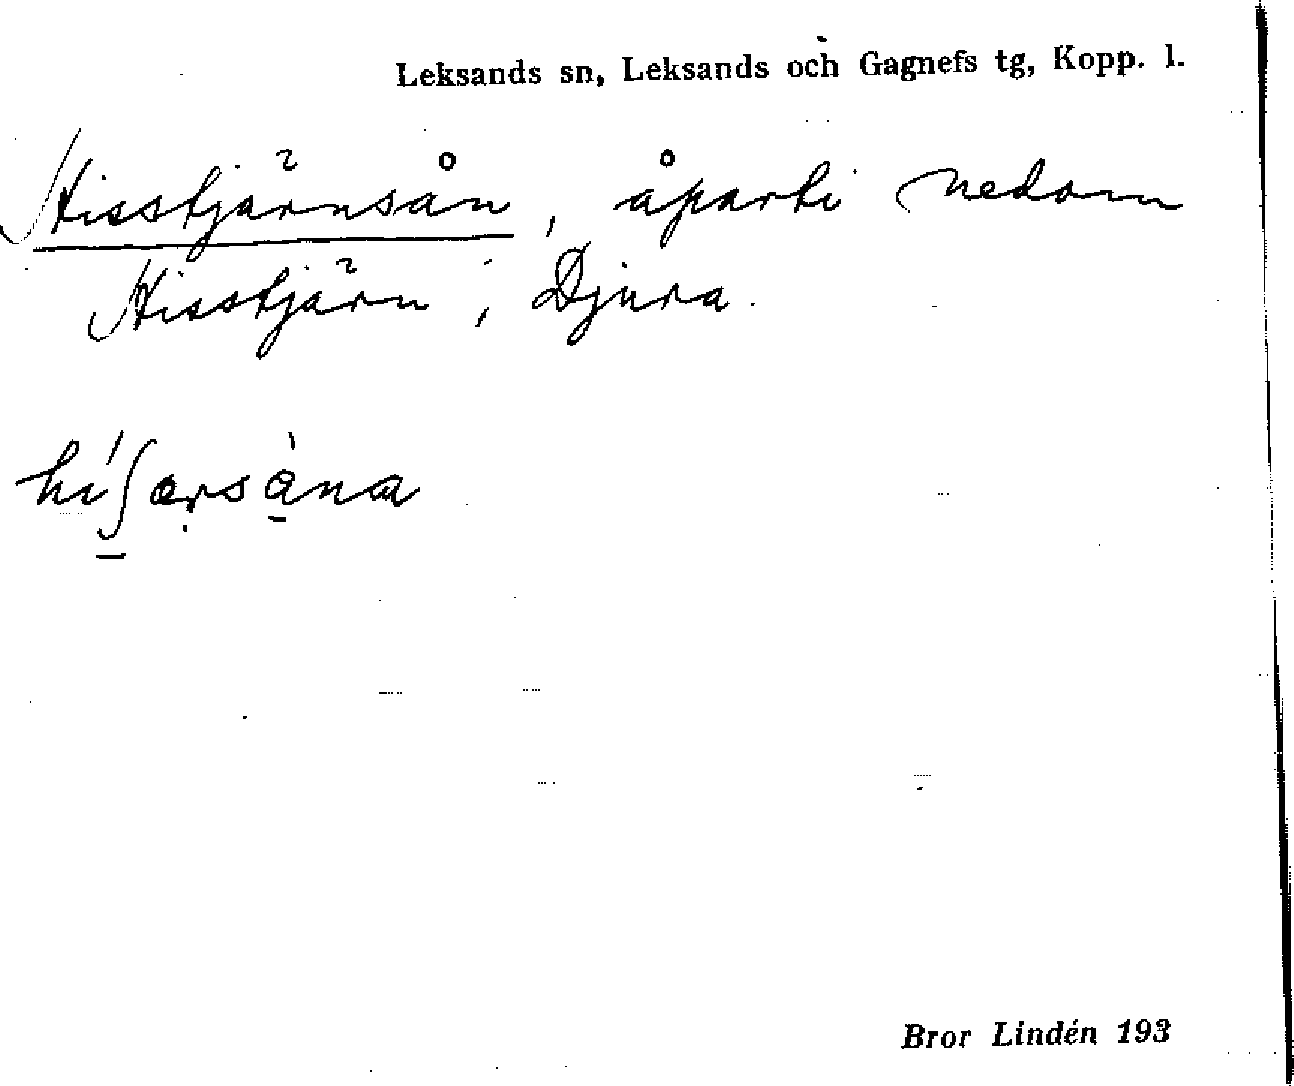 Leksands sn, Leksands och Gagnefs tg, Kopp. l.
Hisstjärnsån, åparti nedom
Hisstjärn, Djura.
Bror Lindén 193